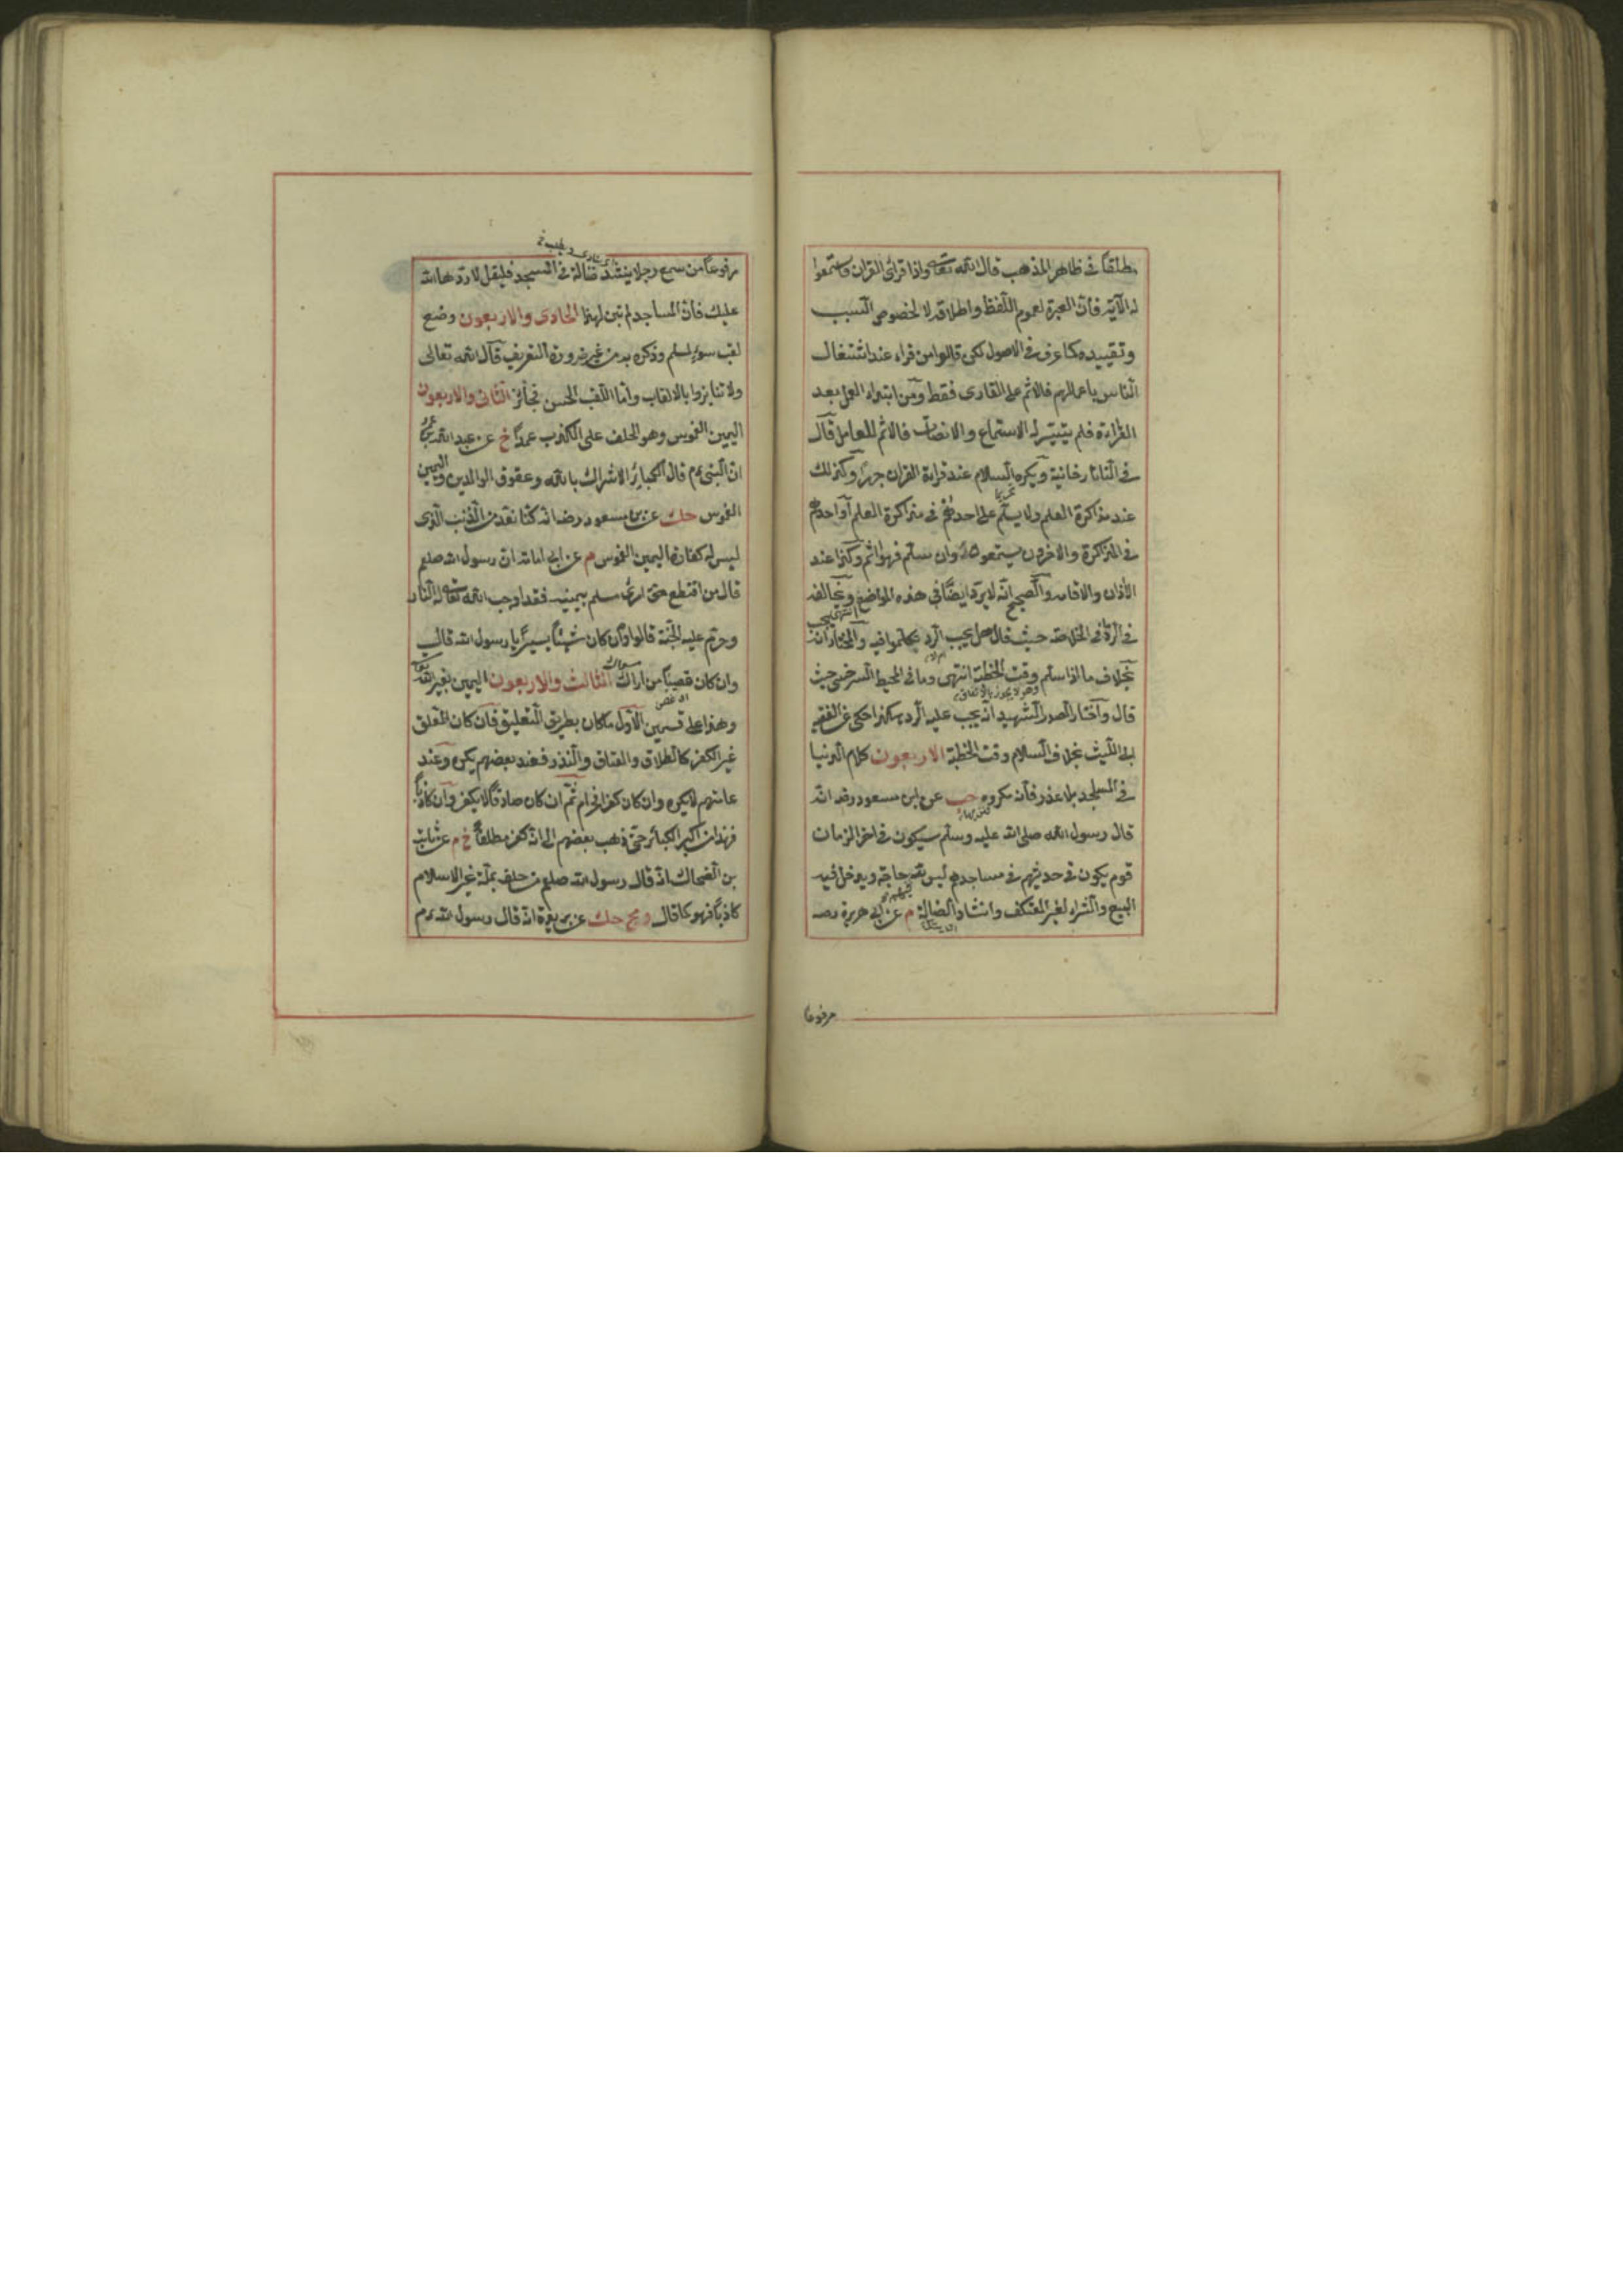 مطلقا فى ظاهر المذهب قال الله تعالى واذا قرئ القران فاستمعوا
له الآية فان العبرة لعموم اللفظ واطلاقه لا لخصوص السبب
وتقييده كما عرف فى الاصول لكن قالوا من قراء عند اشتغال
الناس باعمالهم فالاثم على القارى فقط ومن ابتداء العمل بعد
القراءة فلم يتيسر له الاستماع والانصات فالاثم للعامل قال
فى التاتارخانية ويكره السلام عند قراءة القران جهرا وكذلك
عند مذاكرة العلم ولا يسلم على احدهم فى مذاكرة العلم او احدهم
فى المذاكرة والاخرون يستمعون وان سلم فهو اثم وكذا عند
الأذان والاقامة والصحيح انه لا يرد ايضا فى هذه المواضع ويخالفه
فى الرد ما فى الخلاصة حيث قال هل يجب الرد تكلموا فيه والمختار انه
بخلاف ما اذا سلم وقت الخطبة انتهى وما فى المحيط السرخسى حيث
قال واختار الصدر الشهيد انه يجب عليه الرد هكذا حكى عن الفقيه
ابى الليث بخلاف السلام وقت الخطبة الاربعون كلام الدنيا
فى المساجد بلا عذر فانه مكروه حب عن ابن مسعود رضه انه
قال رسول الله صلى الله عليه وسلم سيكون فى اخر الزمان
قوم يكون فى حديثهم فى مساجدهم ليس لله حاجة ويدخل فيه
البيع والشراء لغير المعتكف وانشاد الضالة م عن ابى هريرة رضه
مرفوعا
مرفوعا من سمع رجلا ينشد ضالة فى المسجد فليقل لا ردها الله
عليك فان المساجد لم تبن لهذا الحادى والاربعون وضع
لقب سوء لمسلم وذكره به من غير ضرورة التعريف قال الله تعالى
ولا تنابزوا بالالقاب واما اللقب الحسن فجائز الثانى والاربعون
اليمين الغموس وهو الحلف على الكذب عمدا خ عن عبد الله بن عمر
ان النبى عم قال الكبائر الاشراك بالله وعقوق الوالدين واليمين
الغموس حك عن بن مسعود رضه انه كنا نعد من الذنب الذى
ليس له كفارة اليمين الغموس م عن ابى امامة ان رسول الله صلعم
قال من اقتطع حق امرئ مسلم بيمينه فقد اوجب الله تعالى له النار
وحرم عليه الجنة قالوا وان كان شيئا يسيرا يا رسول الله قال
وان كان قضيبا من اراك الثالث والاربعون اليمين بغير الله
وهذا على قسمين الاول ما كان بطريق التعليق فان كان المعلق
غير الكفر كالطلاق والعتاق والنذر فعند بعضهم يكره وعند
عامتهم لا يكره وان كان كفرا فحرام ثم ان كان صادقا لا يكفر وان كاذبا
فهذا من اكبر الكبائر حتى ذهب بعضهم الى انه كفر مطلقا خ م عن ثابت
بن الضحاك انه قال رسول الله صلعم من حلف بملة غير الاسلام
كاذبا فهو كما قال حك عن بريدة انه قال رسول الله عم